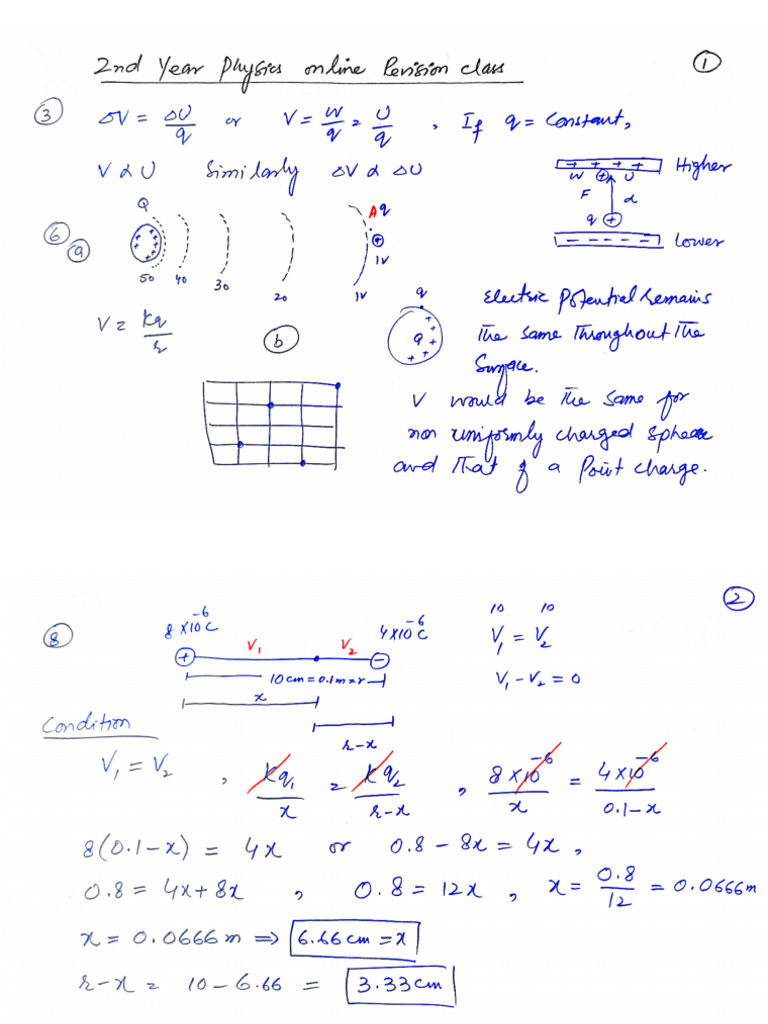 2nd Year Physics online Revision class
①
③ ΔV = ΔU/q or V = W/q = U/q , If q = Constant,
V α U Similarly ΔV α ΔU
+ + + + Higher
W + U
F d
q +
- - - - - Lower
⑥ ⓐ
Q
A q
+
1V
50 40 30 20 1V
V = kq/r
ⓑ
q
Q
Electric Potential Remains
The same Throughout The
Surface.
V would be The same for
non uniformly charged sphere
and That of a Point charge.
②
⑧
8×10⁻⁶C V₁ V₂ 4×10⁻⁶C
+ -
10cm = 0.1m = r
x
r-x
10 10
V₁ = V₂
V₁ - V₂ = 0
Condition
V₁ = V₂ , kq₁/x = kq₂/r-x , 8×10⁻⁶/x = 4×10⁻⁶/0.1-x
8(0.1-x) = 4x or 0.8 - 8x = 4x ,
0.8 = 4x+8x , 0.8 = 12x , x = 0.8/12 = 0.0666m
x = 0.0666m ⇒ 6.66cm = x
r-x = 10 - 6.66 = 3.33cm